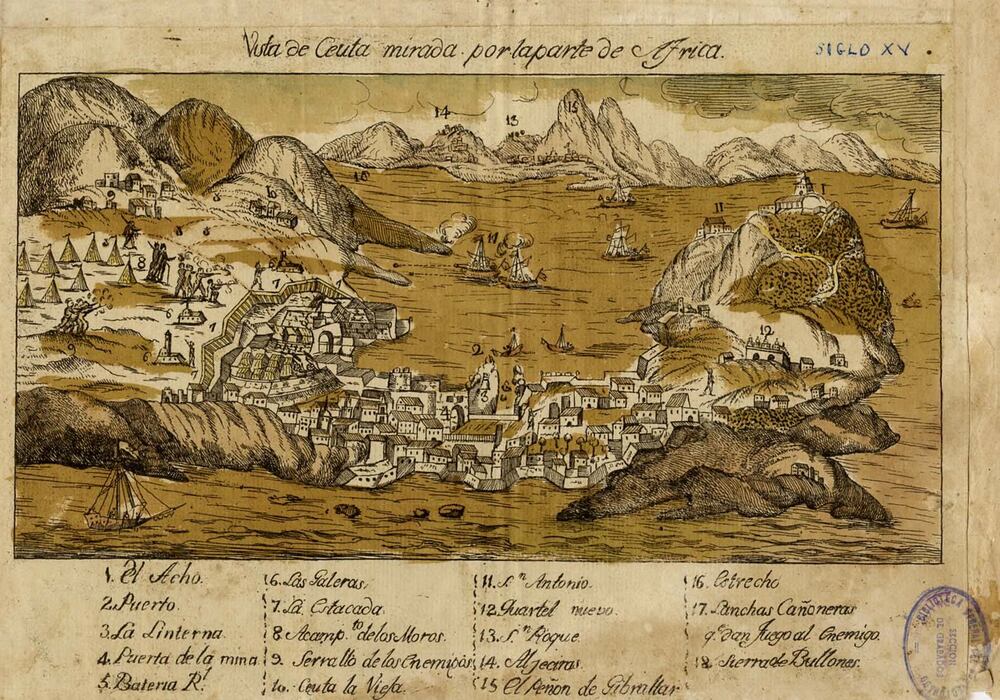 Vista de Ceuta mirada por la parte de Africa.
SIGLO XV
14
13
15
18
9
10
16
1
11
8
17
6
7
12
2
3
4
5
1. El Acho.
2. Puerto.
3. La Linterna.
4. Puerta de la mina
5. Bateria Rl.
6. Las Galeras,
7. La Estacada.
8. Acamp.to de los Moros.
9. Serrallo de los Enemigos.
10. Ceuta la Vieja.
11. Sn. Antonio.
12. Quartel nuevo.
13. Sn. Roque.
14. Algeciras.
15 El Peñon de Gibraltar
16. Estrecho
17. Lanchas Cañoneras
q.e dan fuego al Enemigo.
18. Sierra de Bullones.
BIBLIOTECA
SECCION
DE GRABADOS